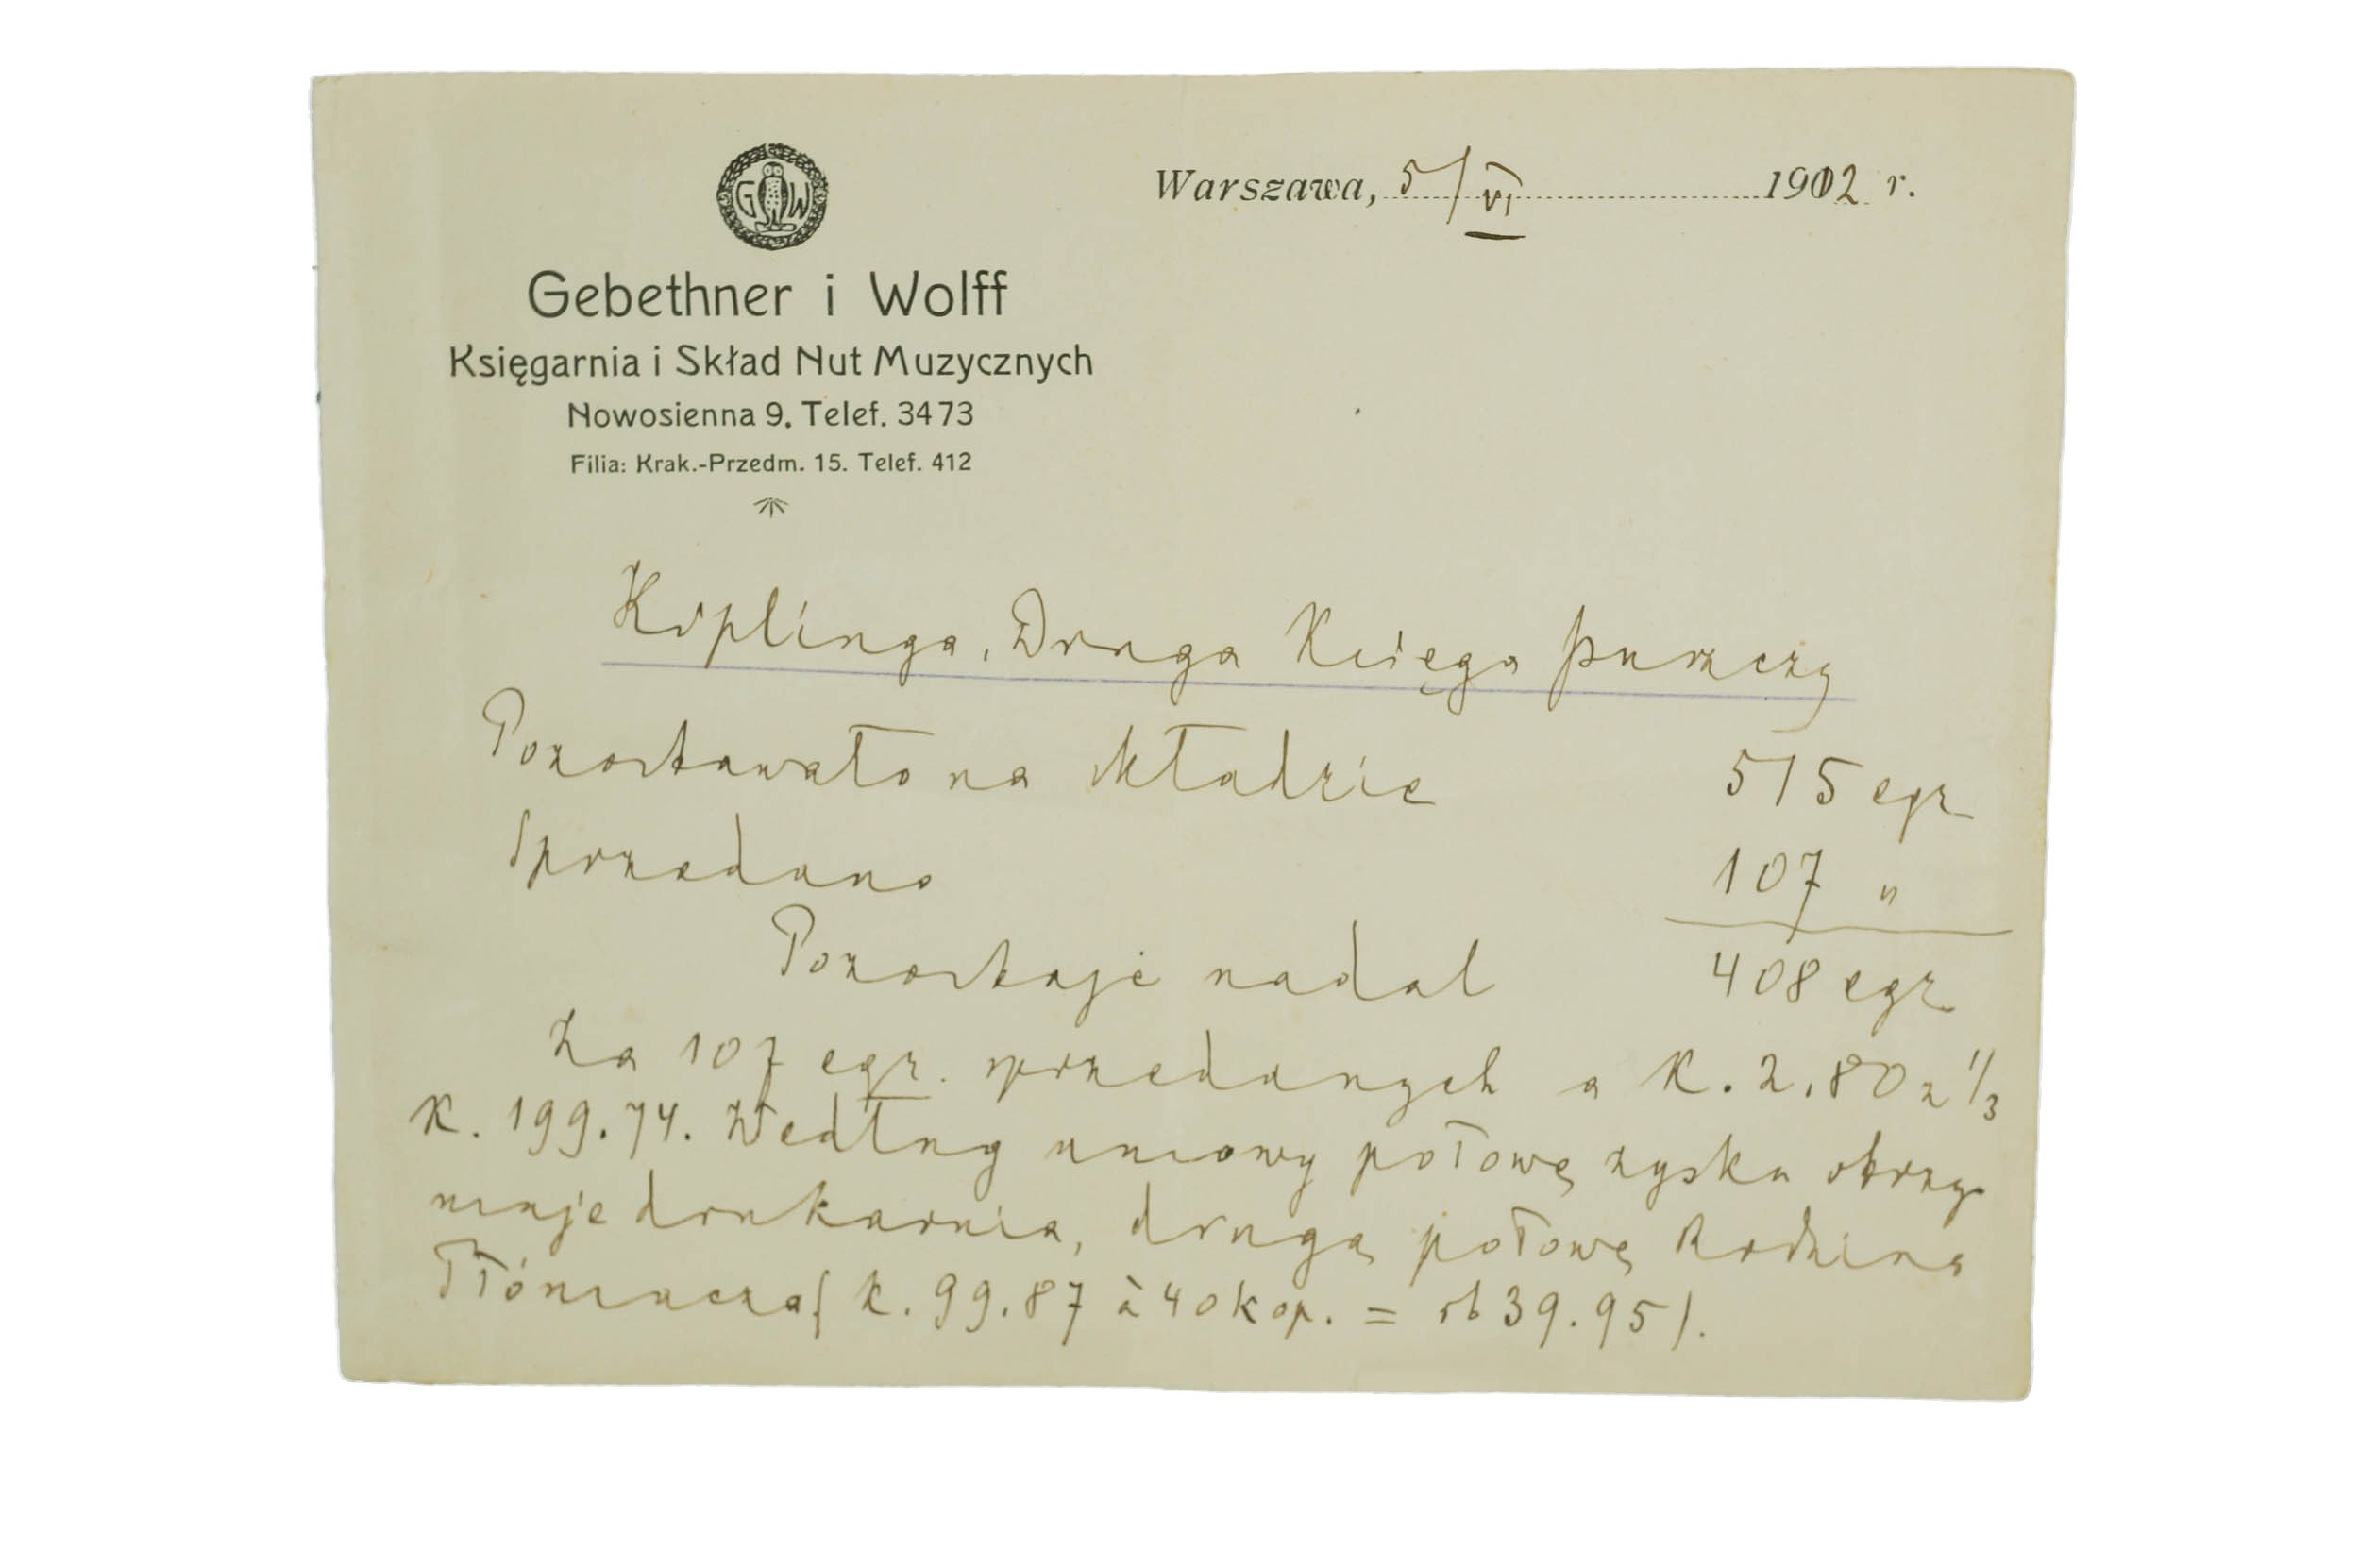 G W
Warszawa, 5/VI 1902 r.
Gebethner i Wolff
Księgarnia i Skład Nut Muzycznych
Nowosienna 9. Telef. 3473
Filia: Krak.-Przedm. 15. Telef. 412
Kiplinga, Druga Księga puszczy
Pozostawało na składzie 515 egz
Sprzedano 107 "
Pozostaje nadal 408 egz
Za 107 egz. sprzedanych a K. 2.80 z 1/3
K. 199.74. Według umowy połowę zysku otrzy
muje drukarnia, drugą połowę Rodzina
Tłómacza (K. 99.87 à 40 kop. = rb 39.95).